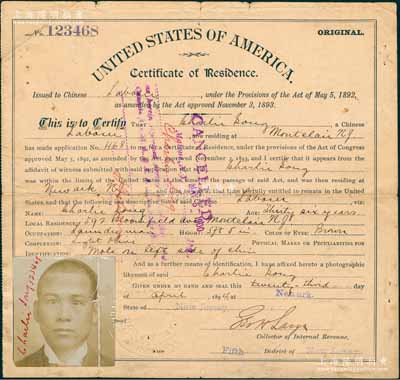 No. 123468
ORIGINAL.
UNITED STATES OF AMERICA.
Certificate of Residence.
Issued to Chinese Laborer, under the Provisions of the Act of May 5, 1892,
as amended by the Act approved November 3, 1893.
This is to Certify THAT Charlie Long, a Chinese
Laborer, now residing at Montclair N.J.
has made application No. 468 to me for a Certificate of Residence, under the provisions of the Act of Congress
approved May 5, 1892, as amended by the Act approved November 3, 1893, and I certify that it appears from the
affidavit of witness submitted with said application that Charlie Long
was within the limits of the United States at the time of the passage of said Act, and was then residing at
Newark N.J. and that he was at that time lawfully entitled to remain in the United
States, and that the following is a descriptive list of said Chinese Laborer viz:
NAME: Charlie Long AGE: Thirty six years.
LOCAL RESIDENCE: 393 Bloomfield ave Montclair N.J.
OCCUPATION: Laundryman HEIGHT: 5 ft 5 in. COLOR OF EYES: Brown
COMPLEXION: Light PHYSICAL MARKS OR PECULIARITIES FOR
IDENTIFICATION: Mole on left side of chin
And as a further means of identification, I have affixed hereto a photographic
likeness of said Charlie Long
GIVEN UNDER MY HAND AND SEAL this twenty third day
of April, 1894, at Newark,
State of New Jersey
Collector of Internal Revenue,
Fifth District of New Jersey
CANCELED
Charlie Long 123468